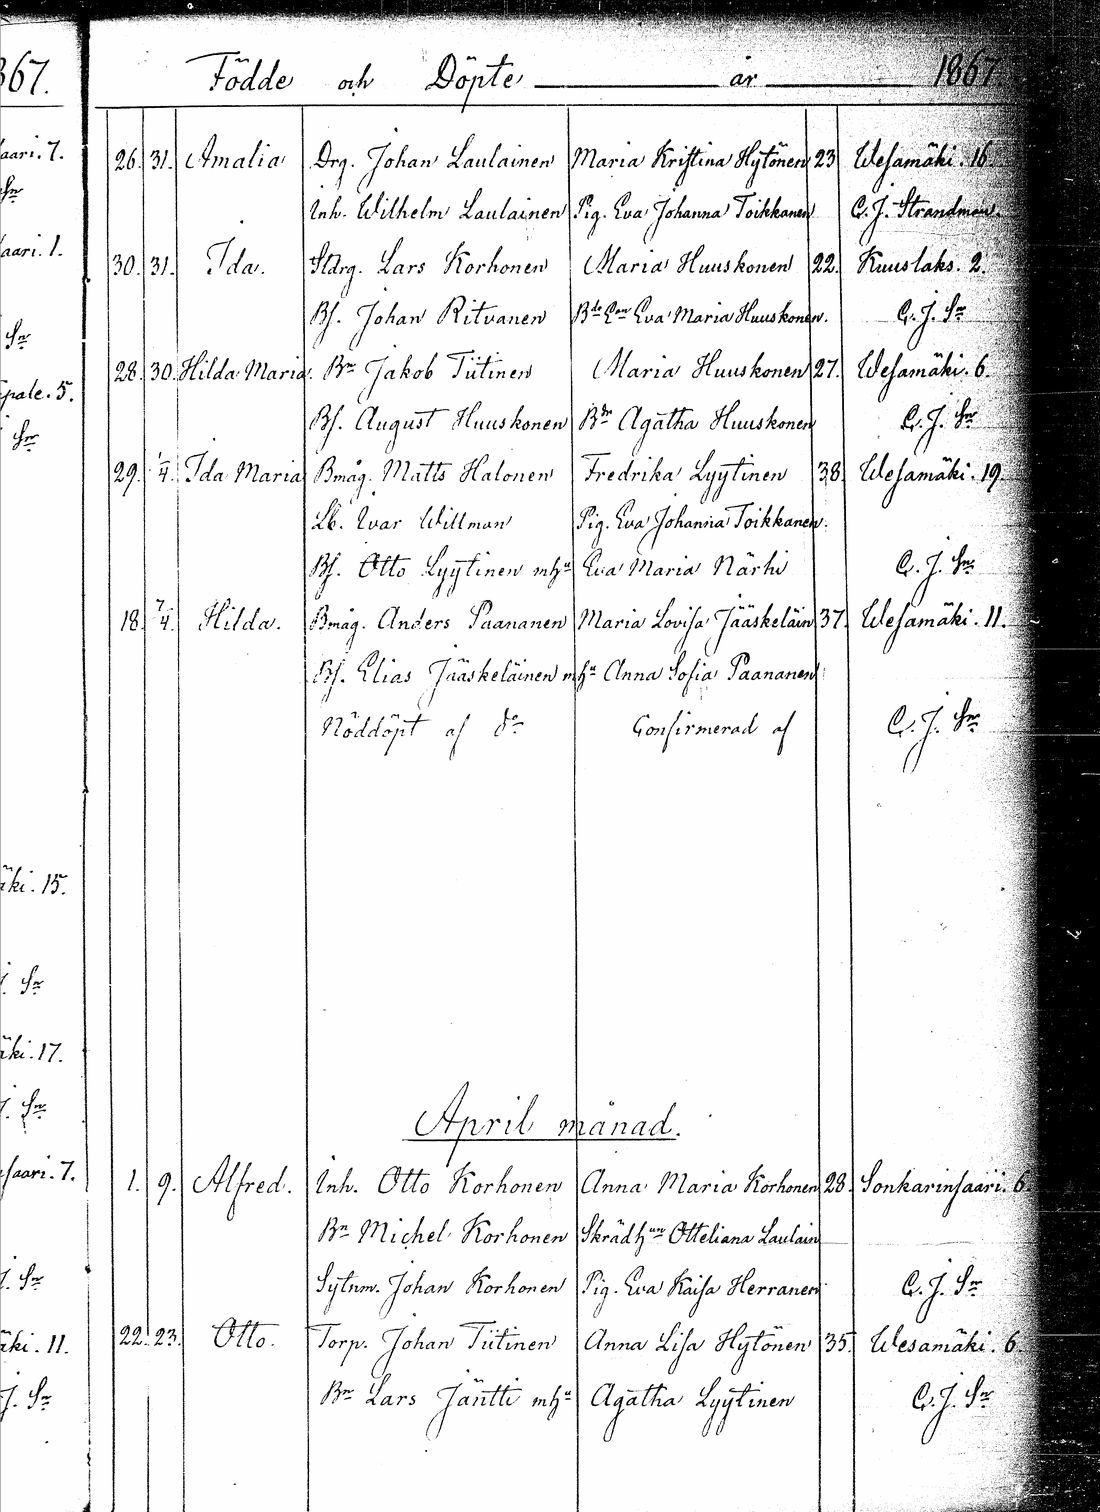 867. Födde och Döpte år 1867.
aari. 7. 26. 31. Amalia Drg. Johan Laulainen Maria Kristina Hytönen 23 Wesamäki. 16.
Sn Inh. Wilhelm Laulainen Pig. Eva Johanna Toikkanen C. J. Strandman.
aari. 1. 30. 31. Ida. Stdrg. Lars Korhonen Maria Huuskonen 22. Kuuslaks. 2.
Sn Bf. Johan Ritvanen Bde Eva Maria Huuskonen. C. J. Sn
pale. 5. 28. 30. Hilda Maria. Bn Jakob Tiitinen Maria Huuskonen 27. Wesamäki. 6.
Sn Bf. August Huuskonen Bdr Agatha Huuskonen C. J. Sn
29. 1/4 Ida Maria Bmåg. Matts Halonen Fredrika Lyytinen 38. Wesamäki. 19.
Lb. Ivar Willman Pig. Eva Johanna Toikkanen.
Bf. Otto Lyytinen mhu Eva Maria Närhi C. J. Sn
18. 7/4. Hilda. Bmåg. Anders Paananen Maria Lovisa Jääskeläin 37. Wesamäki. 11.
Bf. Elias Jääskeläinen mhu Anna Sofia Paananen
Nöddöpt af do Confirmerad af C. J. Sn
äki. 15.
J. Sn
äki. 17.
J. Sn
April månad.
saari. 7. 1. 9. Alfred. Inh. Otto Korhonen Anna Maria Korhonen 28. Sonkarinsaari. 6.
Bn Michel Korhonen Skrädh Otteliana Laulain
J. Sn Sytnm. Johan Korhonen Pig. Eva Kaisa Herranen C. J. Sn
äki. 11. 22. 23. Otto. Torp. Johan Tiitinen Anna Lisa Hytönen 35. Wesamäki. 6
J. Sn Bn Lars Jäntti mhu Agatha Lyytinen C. J. Sn